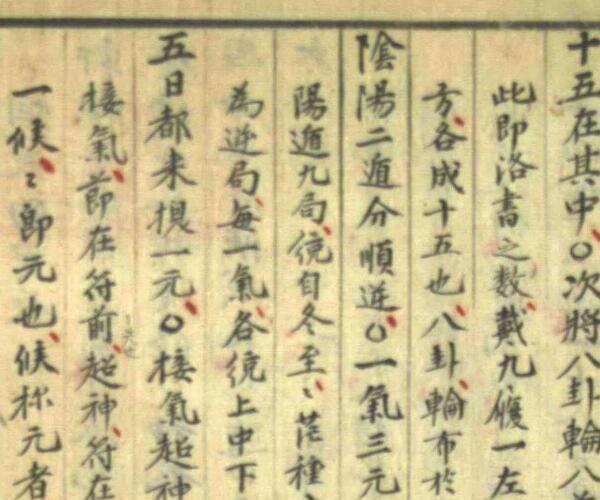 十五在其中〇次將八卦輪八
此即洛書之数戴九履一左
方各成十五也八卦輪布於
陰陽二遁分順逆〇一氣三元
陽遁九局統自冬至〻芒種
為逆局每一氣各統上中下
五日都来換一元〇接氣超神
接氣節在符前超神符在
一候〻即元也候称元者